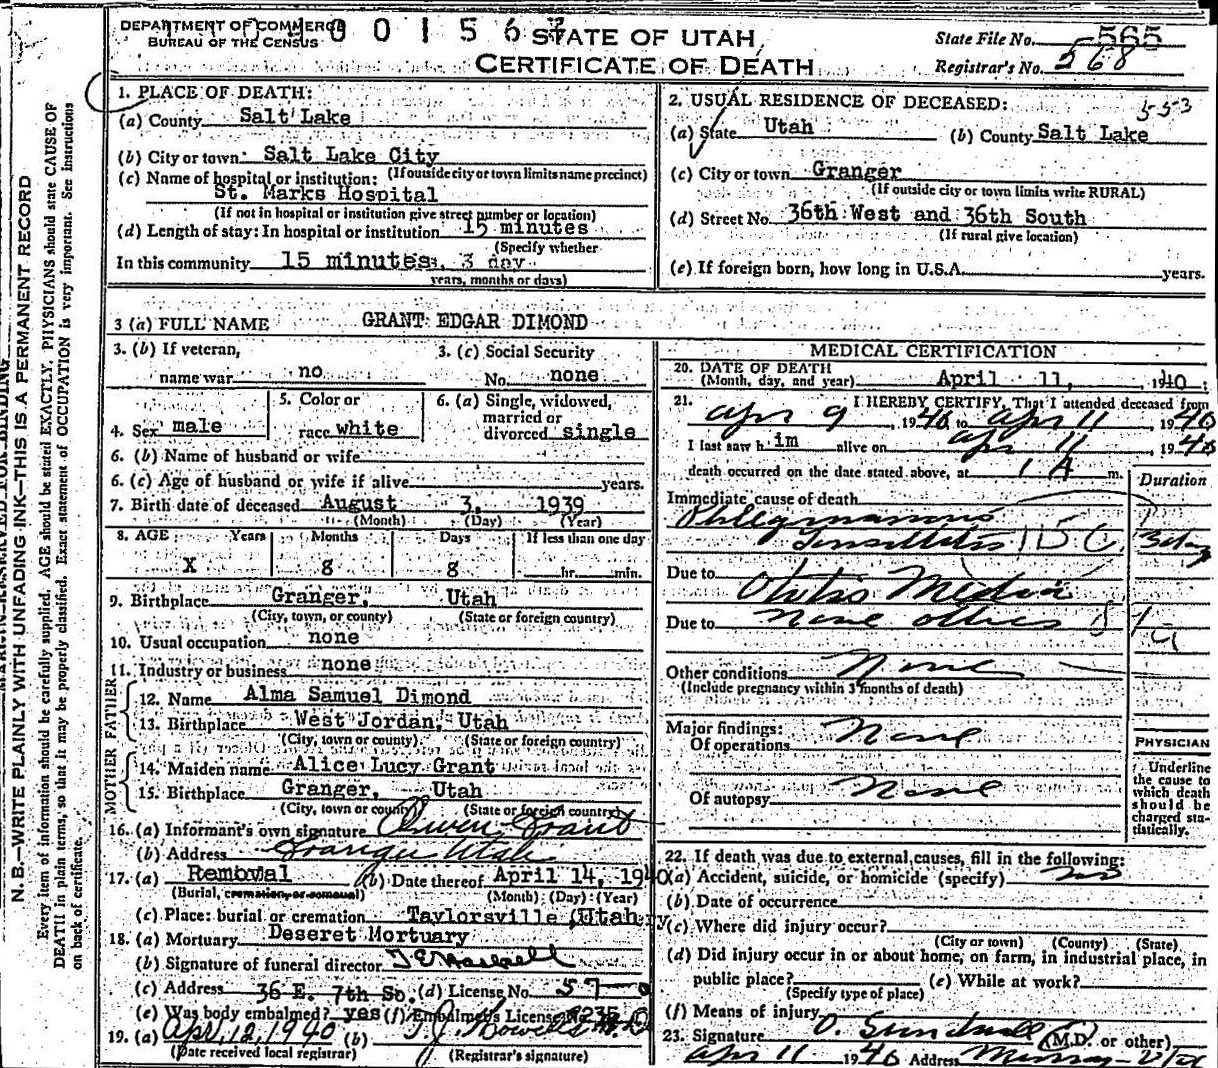 DEPARTMENT OF COMMERCE
BUREAU OF THE CENSUS
0 0 1 5 6
STATE OF UTAH
CERTIFICATE OF DEATH
State File No. 565
Registrar's No. 568
1. PLACE OF DEATH:
(a) County Salt Lake
(b) City or town Salt Lake City
(If outside city or town limits name precinct)
(c) Name of hospital or institution:
St. Marks Hospital
(If not in hospital or institution give street number or location)
(d) Length of stay: In hospital or institution 15 minutes
(Specify whether
In this community 15 minutes, 3 day
years, months or days)
2. USUAL RESIDENCE OF DECEASED:
553
(a) State Utah (b) County Salt Lake
(c) City or town Granger
(If outside city or town limits write RURAL)
(d) Street No. 36th West and 36th South
(If rural give location)
(e) If foreign born, how long in U.S.A. years.
3 (a) FULL NAME GRANT EDGAR DIMOND
3. (b) If veteran,
name war no
3. (c) Social Security
No. none
4. Sex male
5. Color or
race white
6. (a) Single, widowed,
married or
divorced single
6. (b) Name of husband or wife
6. (c) Age of husband or wife if alive years.
7. Birth date of deceased August 3, 1939
(Month) (Day) (Year)
8. AGE Years Months Days If less than one day
X 8 8 hr. min.
9. Birthplace Granger, Utah
(City, town, or county) (State or foreign country)
10. Usual occupation none
11. Industry or business none
FATHER
12. Name Alma Samuel Dimond
13. Birthplace West Jordan, Utah
(City, town or county) (State or foreign country)
MOTHER
14. Maiden name Alice Lucy Grant
15. Birthplace Granger, Utah
(City, town or county) (State or foreign country)
16. (a) Informant's own signature Owen Grant
(b) Address Granger Utah
17. (a) Removal (b) Date thereof April 14, 1940
(Burial, cremation, or removal) (Month) (Day) (Year)
(c) Place: burial or cremation Taylorsville, Utah
18. (a) Mortuary Deseret Mortuary
(b) Signature of funeral director
(c) Address 36 E. 7th So. (d) License No. 57
(e) Was body embalmed? yes (f) Embalmer's License 235
19. (a) Apr, 12, 1940 (b) T. J. Howells M.D.
(Date received local registrar) (Registrar's signature)
MEDICAL CERTIFICATION
20. DATE OF DEATH
(Month, day, and year) April 11, 1940
21. I HEREBY CERTIFY, That I attended deceased from
Apr 9, 1940, to Apr 11, 1940
I last saw him alive on Apr 11, 1940
death occurred on the date stated above, at 1 A m.
Duration
Immediate cause of death
Phlegmanous
Tonsillitis
Due to Otitis Media
Due to None others
Other conditions None
(Include pregnancy within 3 months of death)
Major findings:
Of operations None
Of autopsy None
PHYSICIAN
Underline
the cause to
which death
should be
charged sta-
tistically.
22. If death was due to external causes, fill in the following:
(a) Accident, suicide, or homicide (specify) no
(b) Date of occurrence
(c) Where did injury occur?
(City or town) (County) (State)
(d) Did injury occur in or about home, on farm, in industrial place, in
public place? (e) While at work?
(Specify type of place)
(f) Means of injury
23. Signature O. Sundwall (M.D. or other)
Apr 11 1940 Address Murray - Utah
MARGIN RESERVED FOR BINDING
N. B.—WRITE PLAINLY WITH UNFADING INK—THIS IS A PERMANENT RECORD
Every item of information should be carefully supplied. AGE should be stated EXACTLY. PHYSICIANS should state CAUSE OF
DEATH in plain terms, so that it may be properly classified. Exact statement of OCCUPATION is very important. See instructions
on back of certificate.